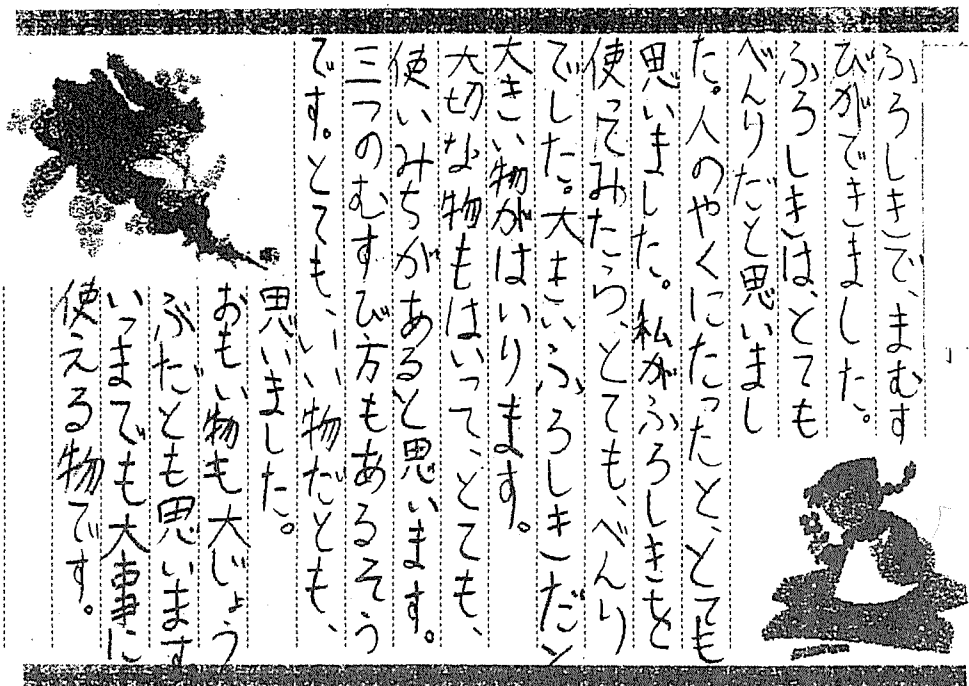 ふろしきで、まむす
びができました。
ふろしきは、とても
べんりだと思いまし
た。人のやくにたったと、とても
思いました。私がふろしきを
使ってみたら、とても、べんり
でした。大きいふろしきだと
大きい物がはいります。
大切な物もはいって、とても、
使いみちがあると思います。
三つのむすび方もあるそう
です。とても、いい物だとも、
思いました。
おもい物も大じょう
ぶだとも思います
いつまでも大事に
使える物です。